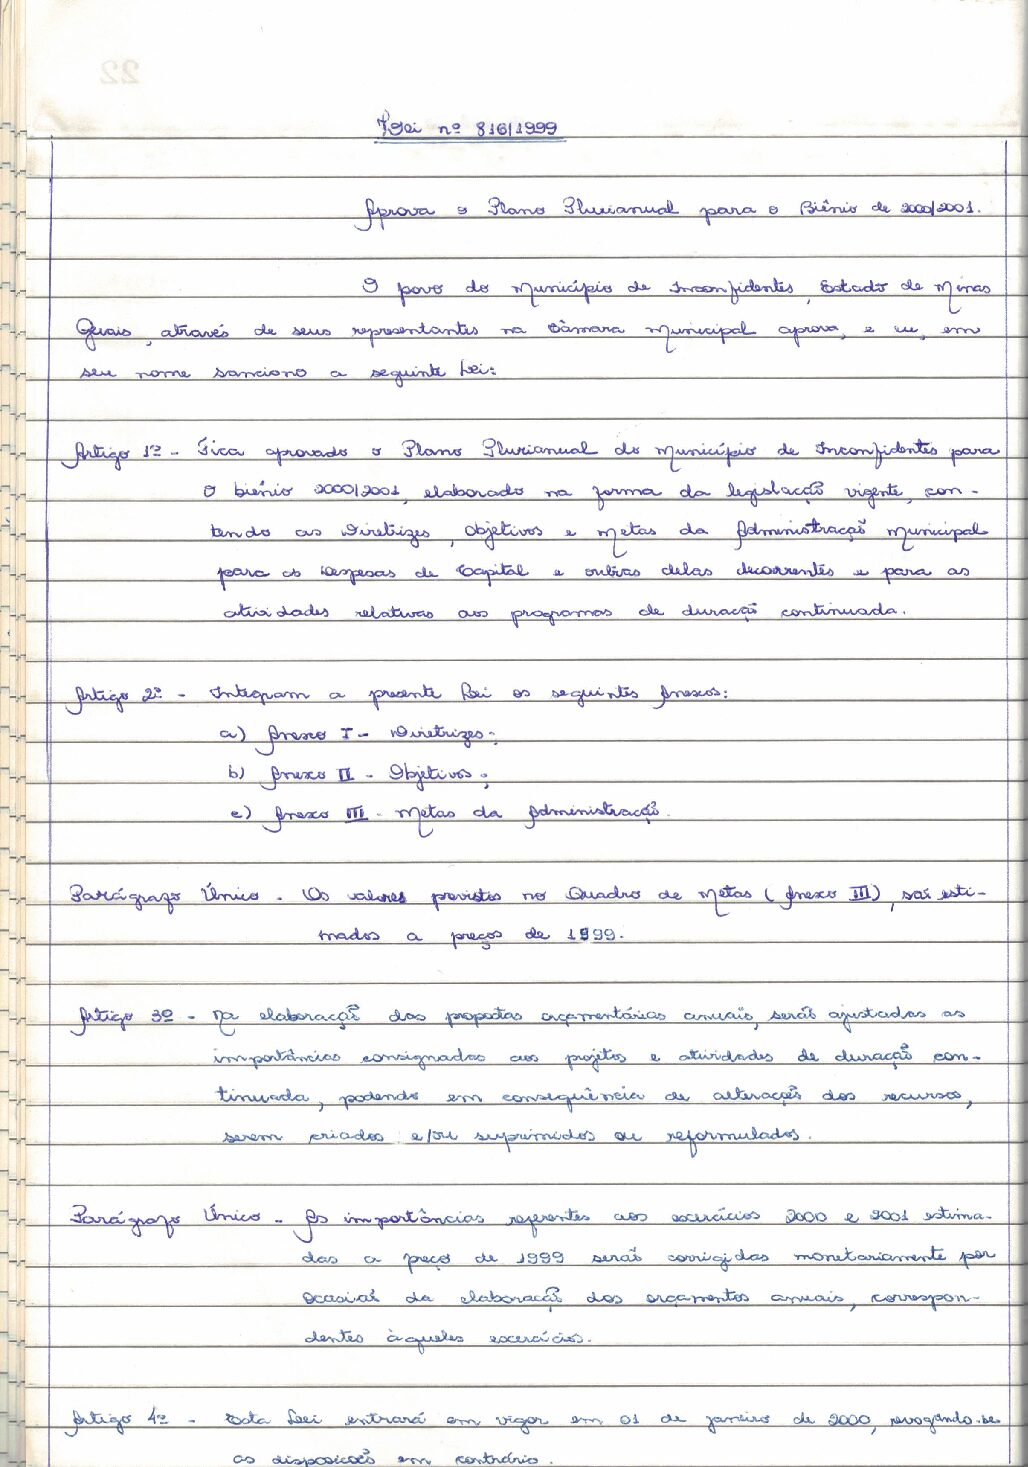 Lei nº 816/1999
Aprova o Plano Plurianual para o Biênio de 2000/2001.
O povo do Município de Inconfidentes, Estado de Minas
Gerais, através de seus representantes na Câmara Municipal aprova, e eu, em
seu nome sanciono a seguinte Lei:
Artigo 1º - Fica aprovado o Plano Plurianual do Município de Inconfidentes para
o biênio 2000/2001, elaborado na forma da legislação vigente, con-
tendo as Diretrizes, Objetivos e Metas da Administração Municipal
para as Despesas de Capital e outras delas decorrentes e para as
atividades relativas aos programas de duração continuada.
Artigo 2º - Integram a presente Lei os seguintes Anexos:
a) Anexo I - Diretrizes;
b) Anexo II - Objetivos;
c) Anexo III - Metas da Administração.
Parágrafo Único - Os valores previstos no Quadro de Metas (Anexo III), são esti-
mados a preços de 1999.
Artigo 3º - Na elaboração das propostas orçamentárias anuais, serão ajustadas as
importâncias consignadas aos projetos e atividades de duração con-
tinuada, podendo em consequência de alteração dos recursos,
serem criados e/ou suprimidos ou reformulados.
Parágrafo Único - As importâncias referentes aos exercícios 2000 e 2001 estima-
das a preço de 1999 serão corrigidas monetariamente por
ocasião da elaboração dos orçamentos anuais, correspon-
dentes àqueles exercícios.
Artigo 4º - Esta Lei entrará em vigor em 01 de janeiro de 2000, revogando-se
as disposições em contrário.